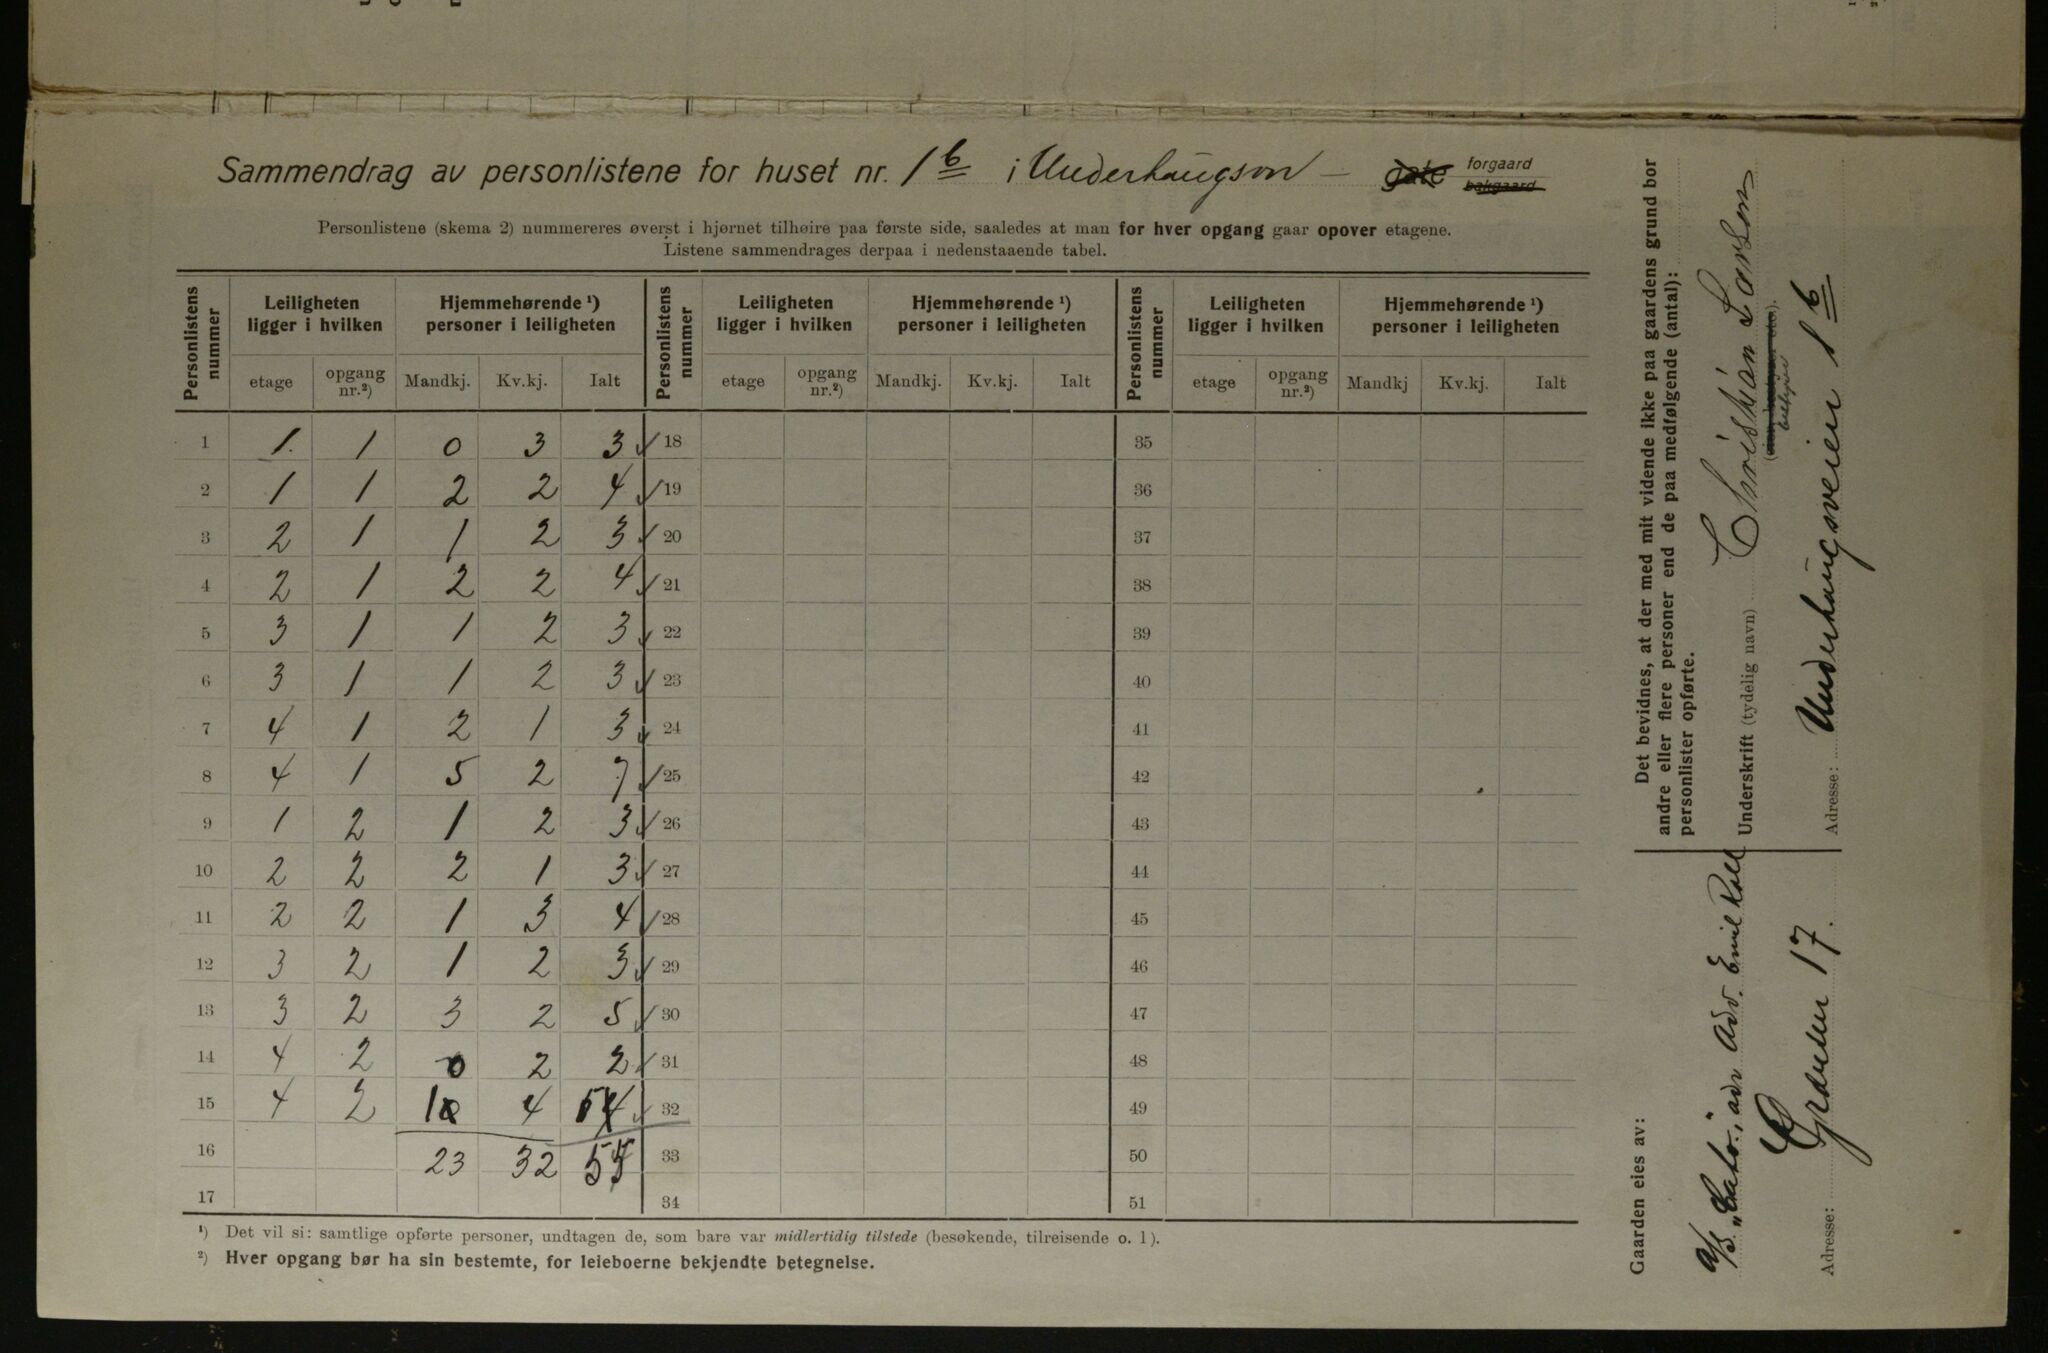 Sammendrag av personlistene for huset nr. 1b i Underhaugsvn – gate forgaard bakgaard
Personlistene (skema 2) nummereres øverst i hjørnet tilhøire paa første side, saaledes at man for hver opgang gaar opover etagene.
Listene sammendrages derpaa i nedenstaaende tabel.
Personlistens nummer | Leiligheten ligger i hvilken | Hjemmehørende ¹) personer i leiligheten | Personlistens nummer | Leiligheten ligger i hvilken | Hjemmehørende ¹) personer i leiligheten | Personlistens nummer | Leiligheten ligger i hvilken | Hjemmehørende ¹) personer i leiligheten
etage | opgang nr.²) | Mandkj. | Kv.kj. | Ialt | etage | opgang nr.²) | Mandkj. | Kv.kj. | Ialt | etage | opgang nr.²) | Mandkj | Kv.kj. | Ialt
1 | 1. | 1 | 0 | 3 | 3 ✓ | 18 | 35
2 | 1 | 1 | 2 | 2 | 4 ✓ | 19 | 36
3 | 2 | 1 | 1 | 2 | 3 ✓ | 20 | 37
4 | 2 | 1 | 2 | 2 | 4 ✓ | 21 | 38
5 | 3 | 1 | 1 | 2 | 3 ✓ | 22 | 39
6 | 3 | 1 | 1 | 2 | 3 ✓ | 23 | 40
7 | 4 | 1 | 2 | 1 | 3 ✓ | 24 | 41
8 | 4 | 1 | 5 | 2 | 7 ✓ | 25 | 42
9 | 1 | 2 | 1 | 2 | 3 ✓ | 26 | 43
10 | 2 | 2 | 2 | 1 | 3 ✓ | 27 | 44
11 | 2 | 2 | 1 | 3 | 4 ✓ | 28 | 45
12 | 3 | 2 | 1 | 2 | 3 ✓ | 29 | 46
13 | 3 | 2 | 3 | 2 | 5 ✓ | 30 | 47
14 | 4 | 2 | 0 | 2 | 2 ✓ | 31 | 48
15 | 4 | 2 | 1 | 4 | 5 ✓ | 32 | 49
16 | 23 | 32 | 55 | 33 | 50
17 | 34 | 51
¹) Det vil si: samtlige opførte personer, undtagen de, som bare var midlertidig tilstede (besøkende, tilreisende o. l).
²) Hver opgang bør ha sin bestemte, for leieboerne bekjendte betegnelse.
Det bevidnes, at der med mit vidende ikke paa gaardens grund bor
andre eller flere personer end de paa medfølgende (antal):
personlister opførte.
Underskrift (tydelig navn) Christian Larsen
bestyrer
Adresse: Underhaugsveien 1b
Gaarden eies av:
A/S. „Cato", adr Adv. Emil Roll
Adresse: Grænsen 17.